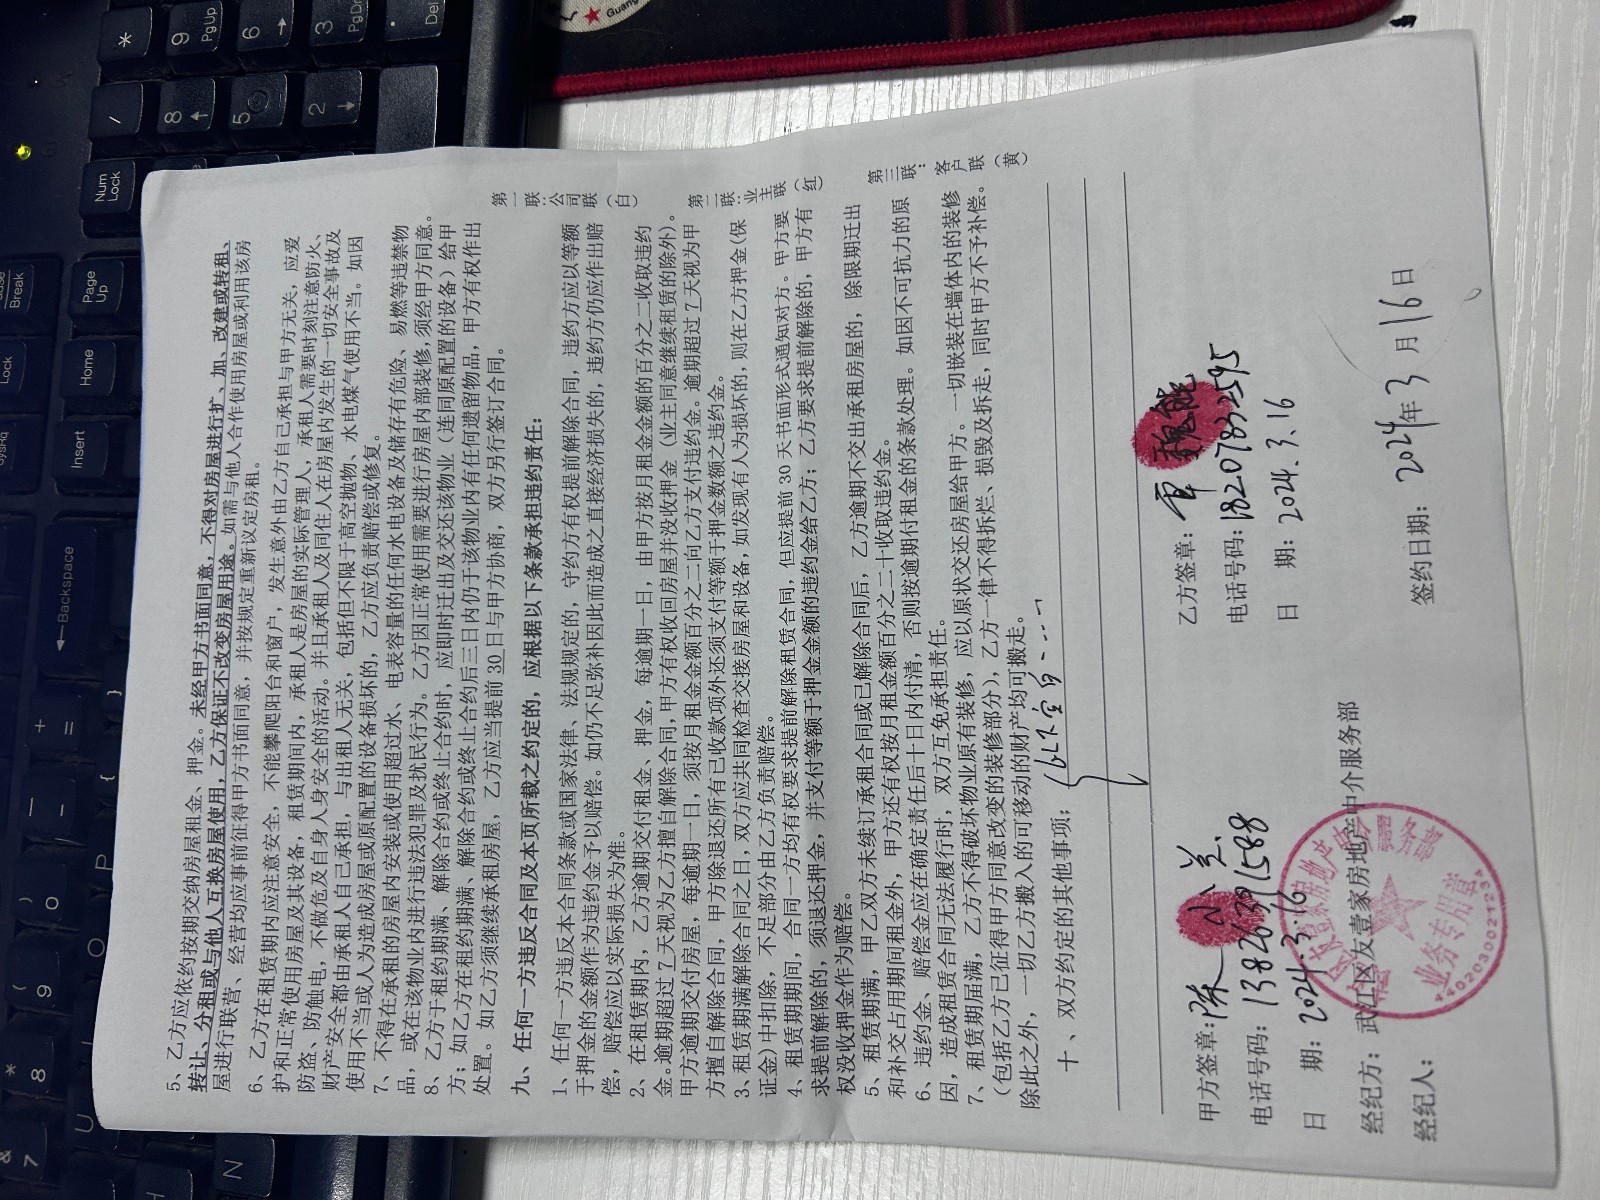 5、乙方应依约按期交纳房屋租金、押金。未经甲方书面同意，不得对房屋进行扩、加、改建或转租、
转让、分租或与他人互换房屋使用，乙方保证不改变房屋用途。如需与他人合作使用房屋或利用该房
屋进行联营、经营均应事前征得甲方书面同意，并按规定重新议定房租。
6、乙方在租赁期内应注意安全，不能攀爬阳台和窗户，发生意外由乙方自己承担与甲方无关，应爱
护和正常使用房屋及其设备，租赁期间内，承租人是房屋的实际管理人，承租人需要时刻注意防火、
防盗、防触电，不做危及自身人身安全的活动。并且承租人及同住人在房屋内发生的一切安全事故及
财产安全都由承租人自己承担，与出租人无关，包括但不限于高空抛物、水电煤气使用不当。如因
使用不当或人为造成房屋或原配置的设备损坏的，乙方应负责赔偿或修复。
7、不得在承租的房屋内安装或使用超过水、电表容量的任何水电设备及储存有危险、易燃等违禁物
品，或在该物业内进行违法犯罪及扰民行为。乙方因正常使用需要进行房屋内部装修，须经甲方同意。
8、乙方于租约期满、解除合约或终止合约时，应即时迁出及交还该物业（连同原配置的设备）给甲
方；如乙方在租约期满、解除合约或终止合约后三日内仍于该物业内有任何遗留物品，甲方有权作出
处置。如乙方须继续承租房屋，乙方应当提前 30 日与甲方协商，双方另行签订合同。
九、任何一方违反合同及本页所载之约定的，应根据以下条款承担违约责任：
1、任何一方违反本合同条款或国家法律、法规规定的，守约方有权提前解除合同，违约方应以等额
于押金的金额作为违约金予以赔偿。如仍不足弥补因此而造成之直接经济损失的，违约方仍应作出赔
偿，赔偿应以实际损失为准。
2、在租赁期内，乙方逾期交付租金、押金，每逾期一日，由甲方按月租金金额的百分之二收取违约
金。逾期超过 7 天视为乙方擅自解除合同，甲方有权收回房屋并没收押金（业主同意继续租赁的除外）。
甲方逾期交付房屋，每逾期一日，须按月租金金额百分之二向乙方支付违约金。逾期超过 7 天视为甲
方擅自解除合同，甲方除退还所有已收款项外还须支付等额于押金数额之违约金。
3、租赁期满解除合同之日，双方应共同检查交接房屋和设备，如发现有人为损坏的，则在乙方押金（保
证金）中扣除，不足部分由乙方负责赔偿。
4、租赁期期间，合同一方均有权要求提前解除租赁合同，但应提前 30 天书面形式通知对方。甲方要
求提前解除的，须退还押金，并支付等额于押金金额的违约金给乙方；乙方要求提前解除的，甲方有
权没收押金作为赔偿。
5、租赁期满，甲乙双方未续订承租合同或已解除合同后，乙方逾期不交出承租房屋的，除限期迁出
和补交占用期间租金外，甲方还有权按月租金额百分之二十收取违约金。
6、违约金、赔偿金应在确定责任后十日内付清，否则按逾期付租金的条款处理。如因不可抗力的原
因，造成租赁合同无法履行时，双方互免承担责任。
7、租赁期届满，乙方不得破坏物业原有装修，应以原状交还房屋给甲方。一切嵌装在墙体内的装修
（包括乙方已征得甲方同意改变的装修部分），乙方一律不得拆烂、损毁及拆走，同时甲方不予补偿。
除此之外，一切乙方搬入的可移动的财产均可搬走。
十、双方约定的其他事项：
以下空白
第一联：公司联（白）
第二联：业主联（红）
第三联：客户联（黄）
甲方签章：陈
乙方签章：覃
电话号码：13826391588
电话号码：18207832595
日 期：2024.3.16
日 期：2024.3.16
经纪方：武江区友壹家房地产中介服务部
签约日期：2024年3月16日
经纪人：
业务专用章
4402030021234
* 9 PgUp 6 → 3 PgDn . Del
/ 8 ↑ 5 2 ↓
Num Lock
Break
Page Up
Lock
Home
SysRq
Insert
←Backspace
+ =
} ]
{ [
) 0
P
( 9
O
* 8
U
& 7
N
Guang